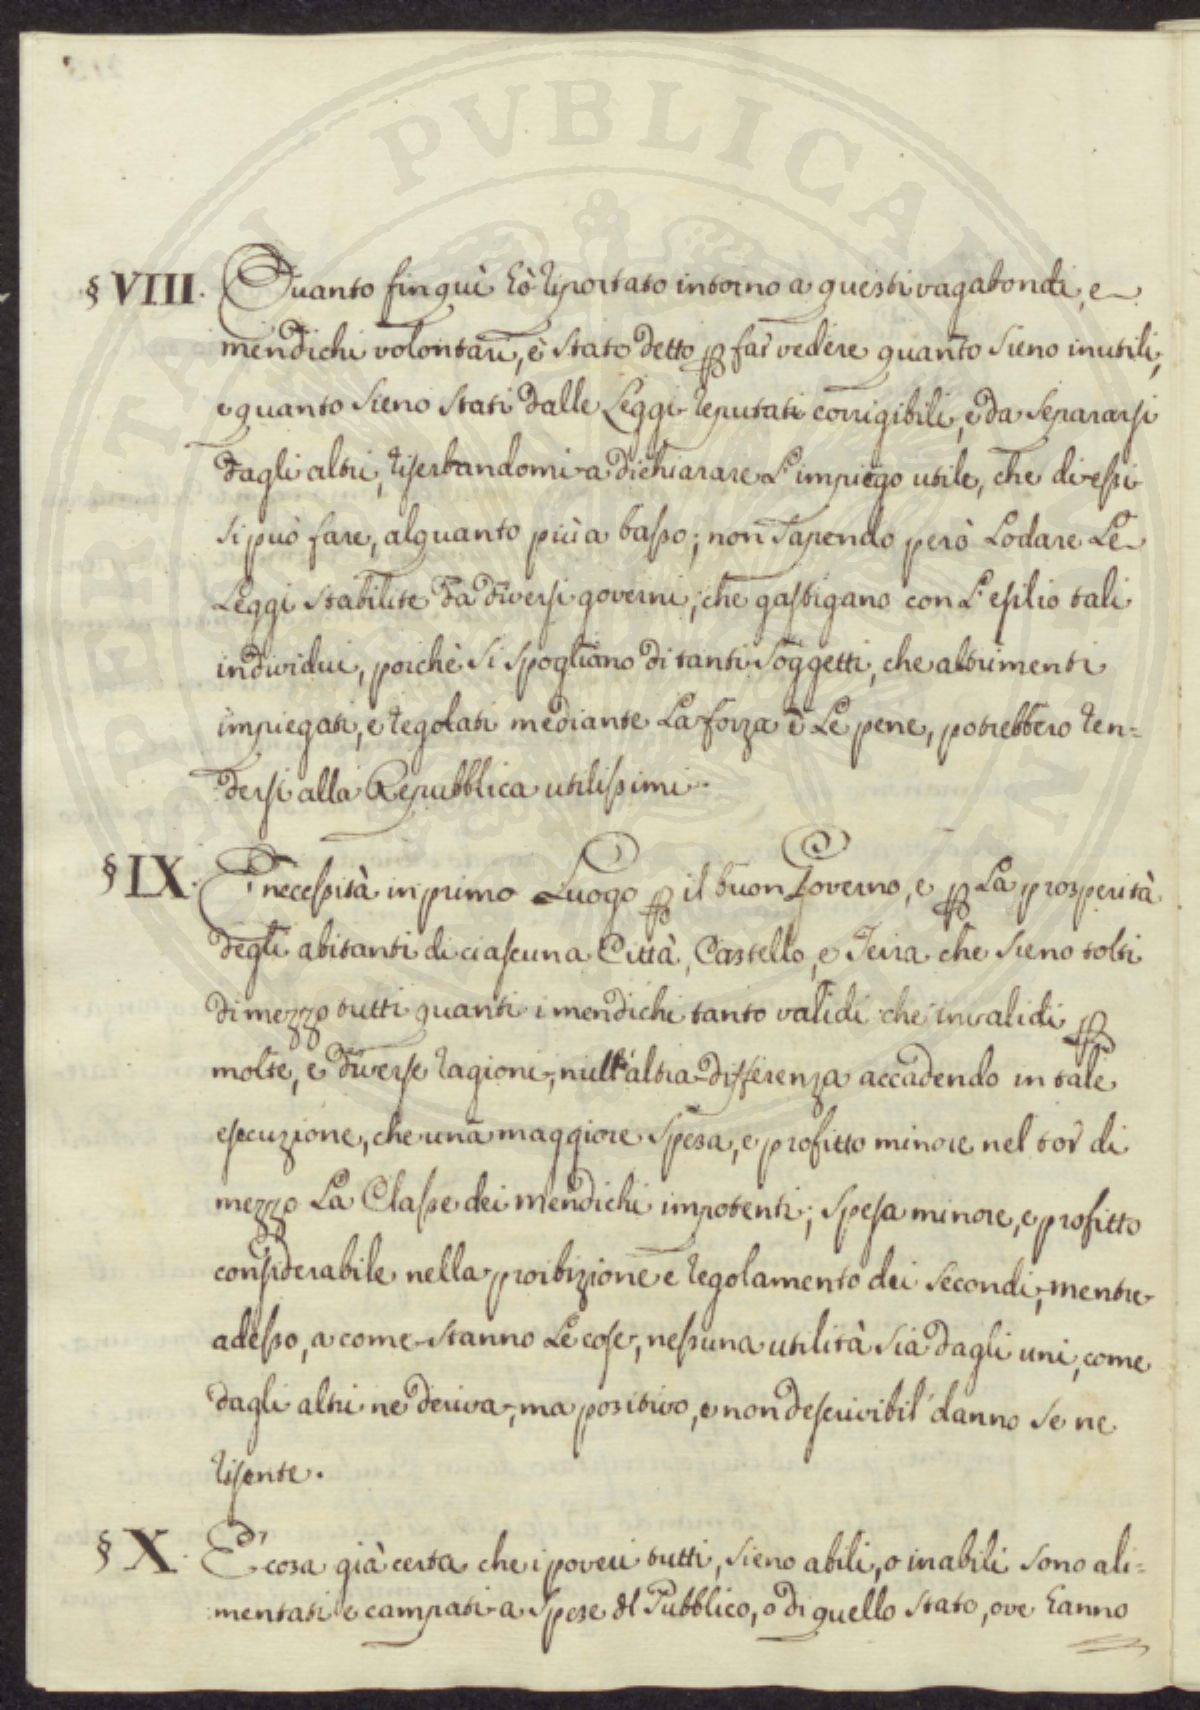 § VIII. Quanto fin quì hò riportato intorno a questi vagabondi, e
mendichi volontarj, è stato detto ꝑ far vedere quanto sieno inutili,
e quanto sieno stati dalle Leggi reputati corrigibili, e da separarsi
dagli altri, riserbandomi a dichiarare L'impiego utile, che di essi
si può fare, alquanto più a basso; non sapendo però Lodare Le
Leggi stabilite da diversi governi, che gastigano con L'esilio tali
individui, poichè si spogliano di tanti soggetti, che altrimenti
impiegati, e regolati mediante La forza e Le pene, potrebbero ren=
dersi alla Repubblica utilissimi.
§ IX. E' necessità in primo Luogo ꝑ il buon Governo, e ꝑ La prosperità
degli abitanti di ciascuna Città, Castello, e Terra che sieno tolti
di mezzo tutti quanti i mendichi tanto validi che invalidi ꝑ
molte, e diverse ragioni, null'altra differenza accadendo in tale
esecuzione, che una maggiore spesa, e profitto minore nel tor di
mezzo La Classe dei mendichi impotenti; spesa minore, e profitto
considerabile nella proibizione e regolamento dei secondi, mentre
adesso, a come stanno Le cose, nessuna utilità sia dagli uni, come
dagli altri ne deriva, ma positivo, e non descrivibil' danno se ne
risente.
§ X. E' cosa già certa che i poveri tutti, sieno abili, o inabili sono ali=
mentati e campati a spese del Pubblico, o di quello stato, ove hanno
SPERITAN PUBLICAM